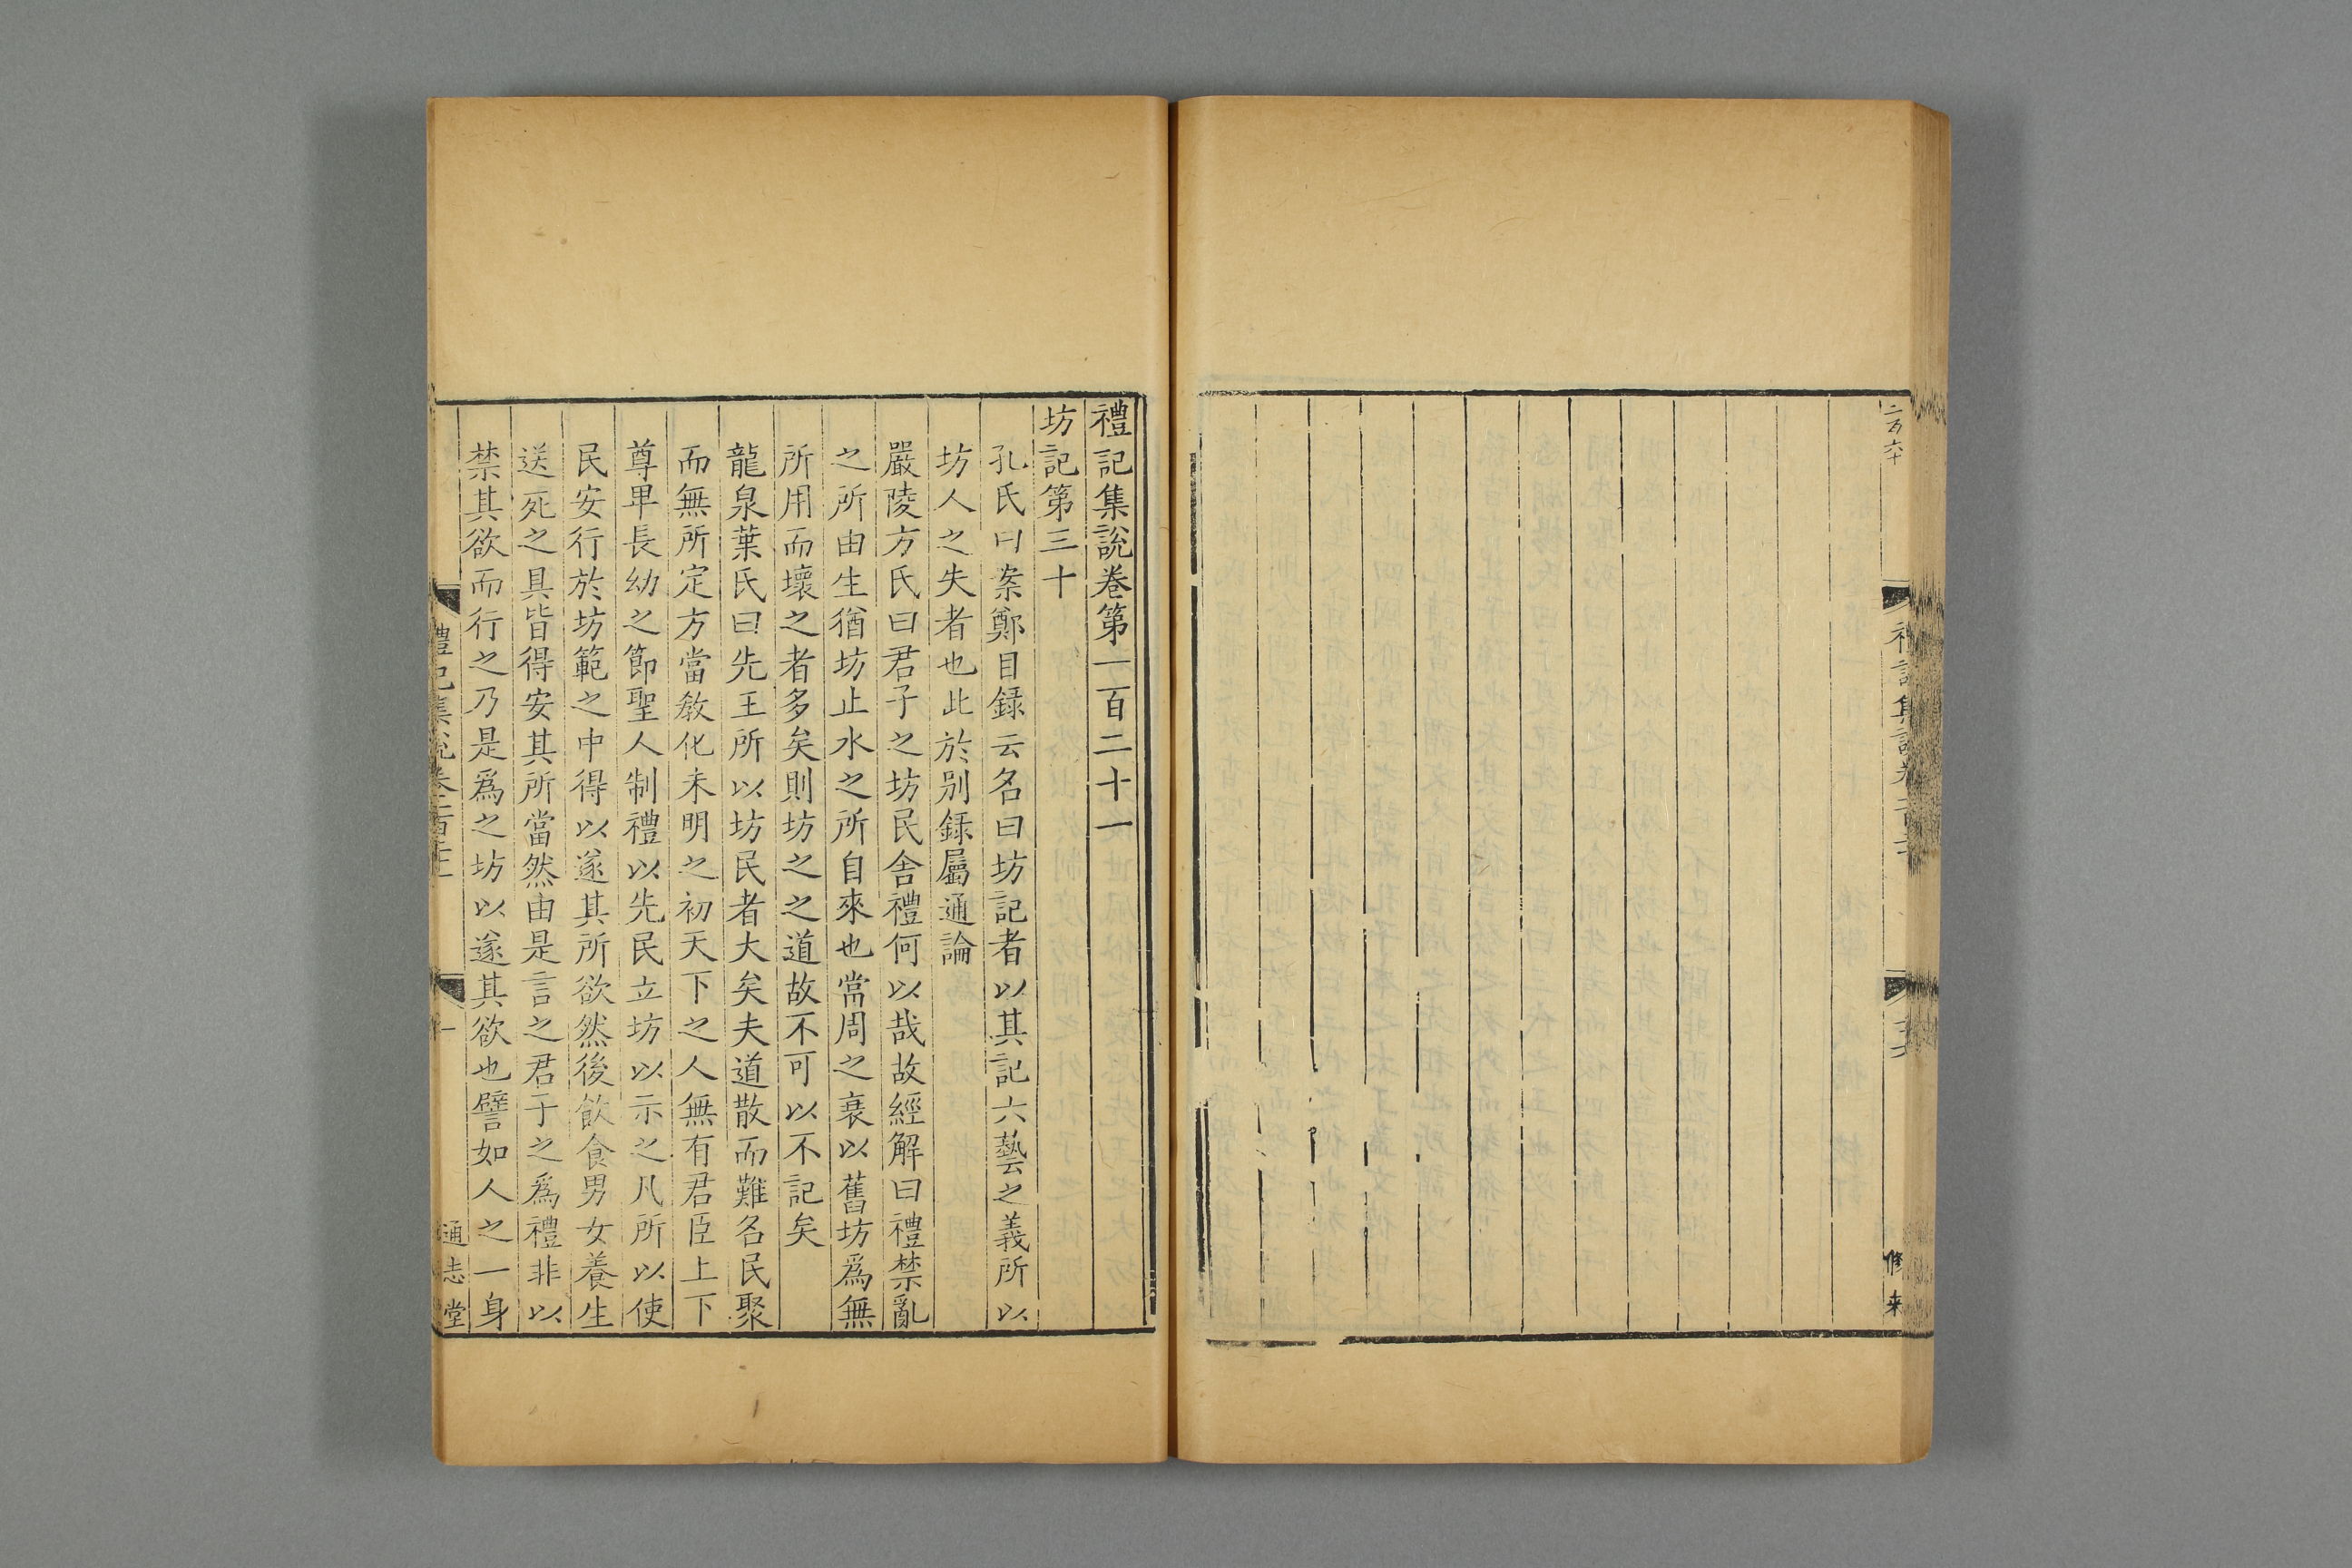 二百六十
修来
禮記集說卷第一百二十一
坊記第三十
孔氏曰案鄭目録云名曰坊記者以其記六藝之義所以
坊人之失者也此於别録屬通論
嚴陵方氏曰君子之坊民舍禮何以哉故經解曰禮禁亂
之所由生猶坊止水之所自來也當周之衰以舊坊爲無
所用而壞之者多矣則坊之之道故不可以不記矣
龍泉葉氏曰先王所以坊民者大矣夫道散而難名民聚
而無所定方當敎化未明之初天下之人無有君臣上下
尊卑長幼之節聖人制禮以先民立坊以示之凡所以使
民安行於坊範之中得以遂其所欲然後飲食男女養生
送死之具皆得安其所當然由是言之君子之爲禮非以
禁其欲而行之乃是爲之坊以遂其欲也譬如人之一身
禮記集說卷百廿一
一
通志堂